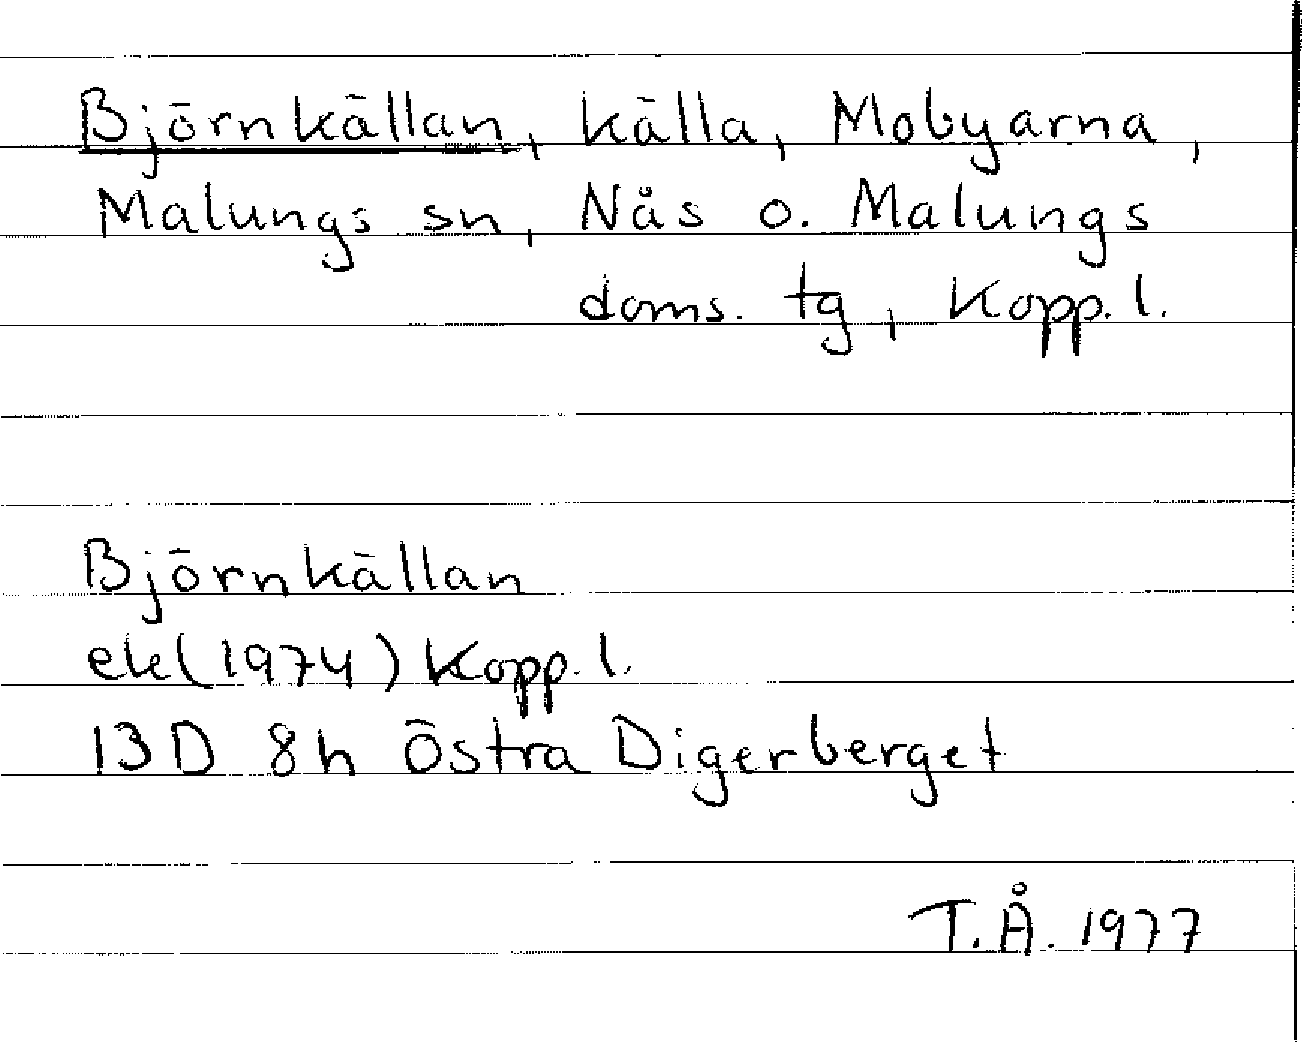 Björnkällan, källa, Mobyarna,
Malungs sn, Nås o. Malungs
doms. tg, Kopp. l.
Björnkällan
ek(1974) Kopp. l.
13D 8h Östra Digerberget
T.Å. 1977